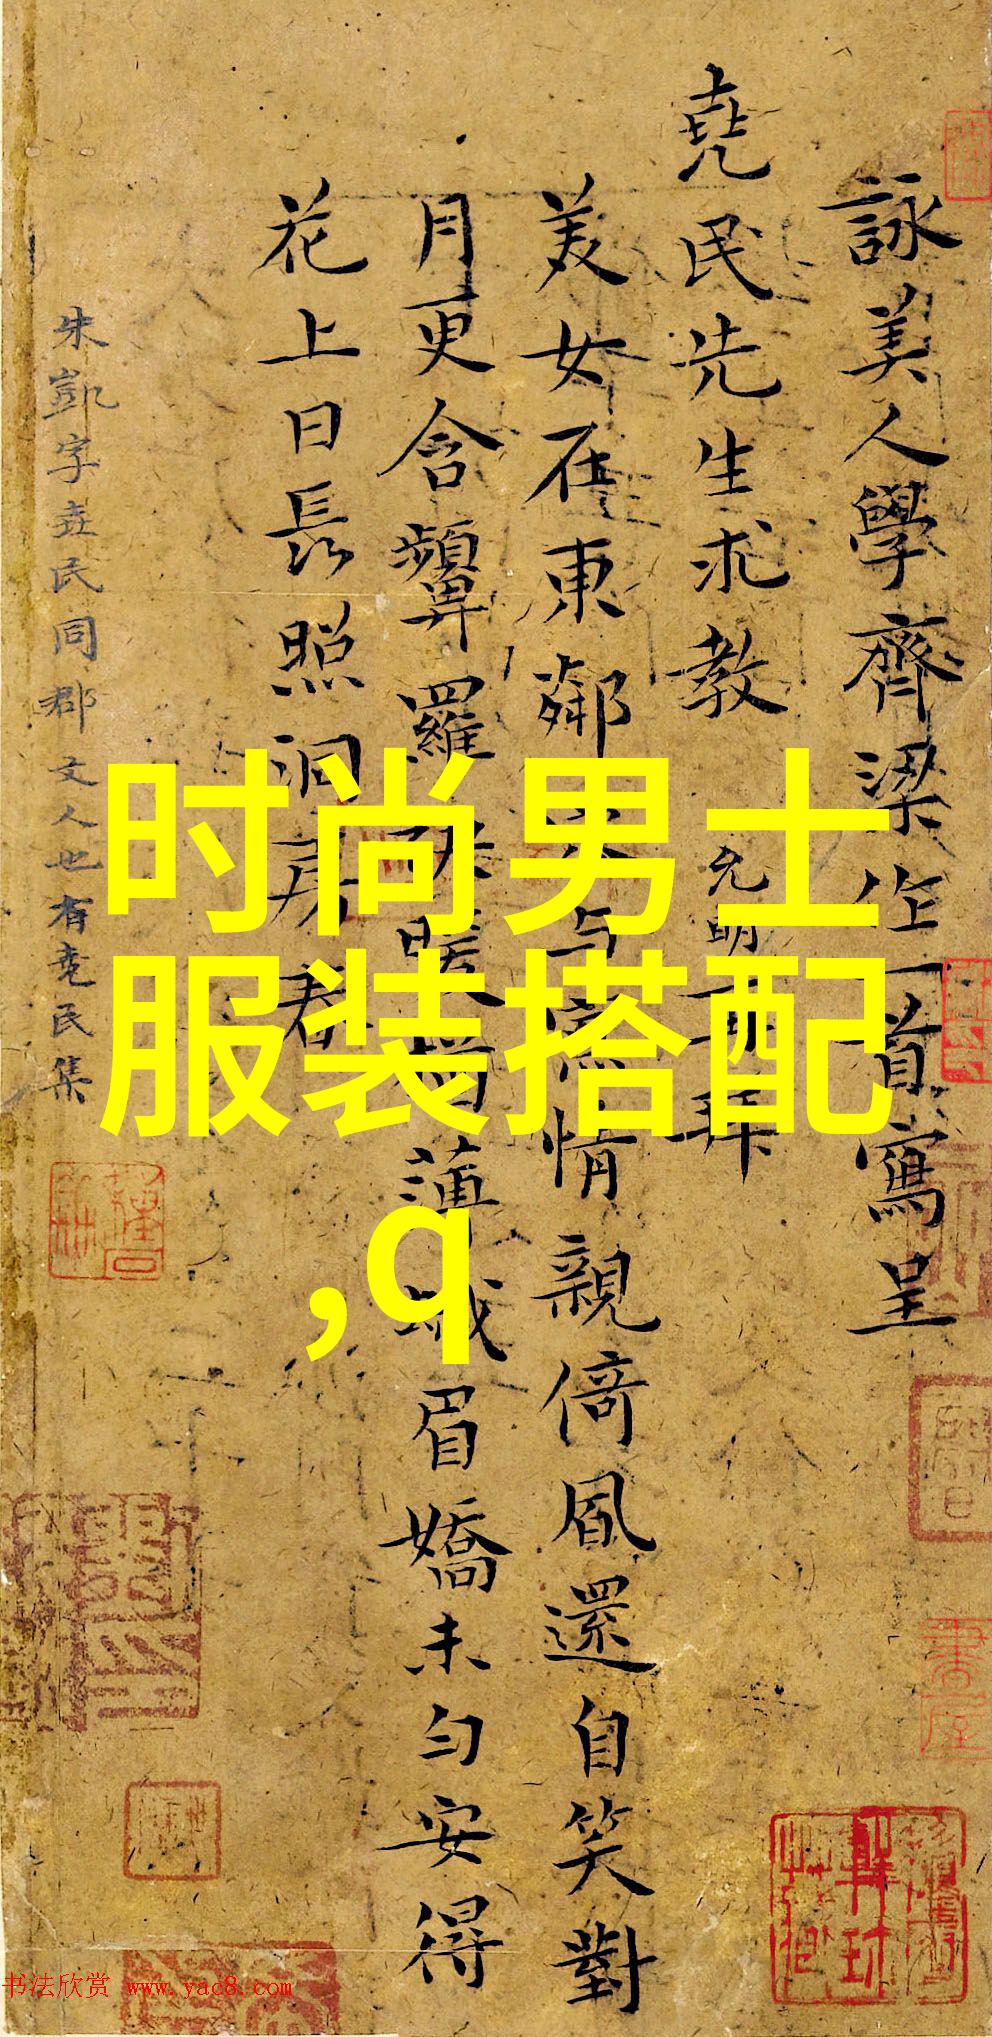 詠美人學齊梁作一首寫呈
堯民先生求教 允明再拜
美女在東鄰 與 情親倚風還自笑對
月更含顰羅 暖 薄 眉嬌未勻安得
花上日長照洞房春
朱凱字堯民同郡文人也有堯民集
时尚男士
服装搭配
,q
书法欣赏 www.yac8.com